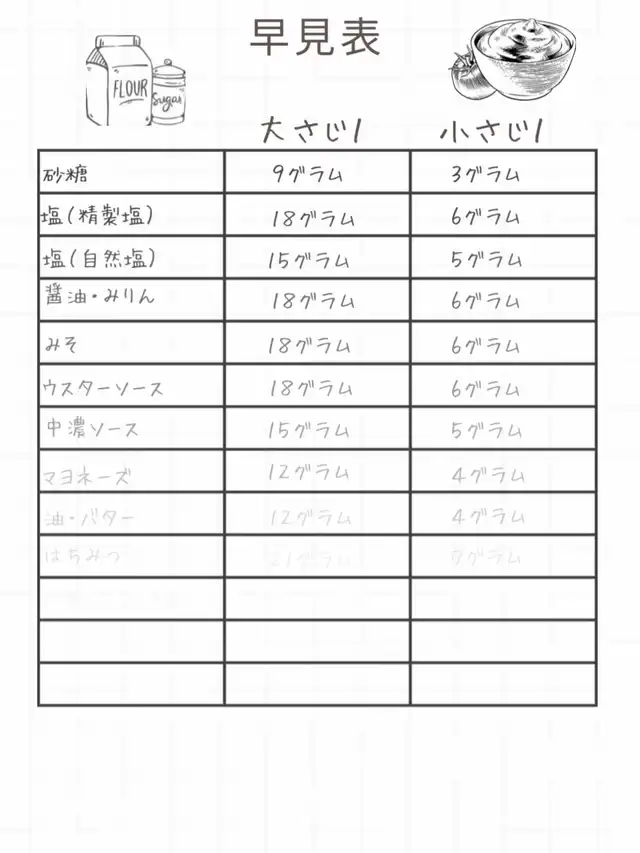 早見表
FLOUR
Sugar
大さじ1 小さじ1
砂糖 9グラム 3グラム
塩(精製塩) 18グラム 6グラム
塩(自然塩) 15グラム 5グラム
醤油・みりん 18グラム 6グラム
みそ 18グラム 6グラム
ウスターソース 18グラム 6グラム
中濃ソース 15グラム 5グラム
マヨネーズ 12グラム 4グラム
油・バター 12グラム 4グラム
はちみつ 21グラム 7グラム